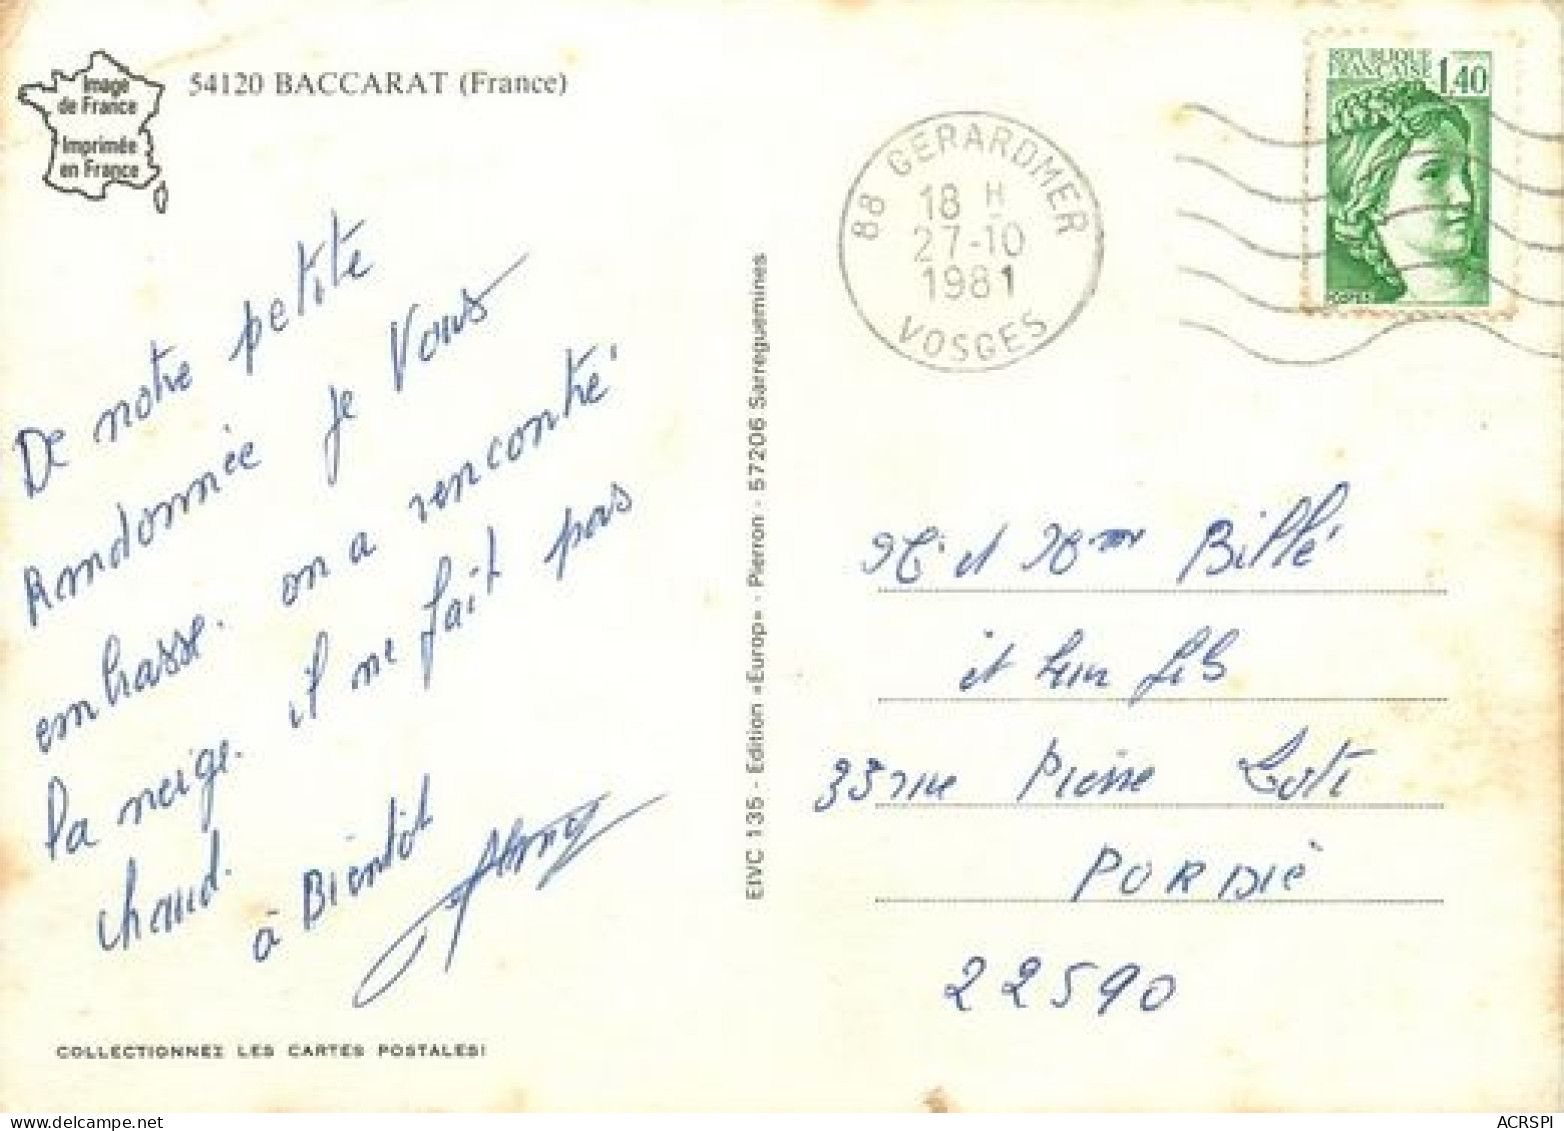 Image
de France
Imprimée
en France
54120 BACCARAT (France)
De notre petite
Randonnée je Vous
embrasse. on a rencontré
la neige. il ne fait pas
chaud.
à Bientôt
COLLECTIONNEZ LES CARTES POSTALES!
EIVC 135 - Edition «Europ» - Pierron - 57206 Sarreguemines
88 GERARDMER
18 H
27-10
1981
VOSGES
REPUBLIQUE
FRANÇAISE 1,40
POSTES
M. et Mme Billé
et leur fils
33 rue Pierre Loti
PORDIC
22590
ACRSPI